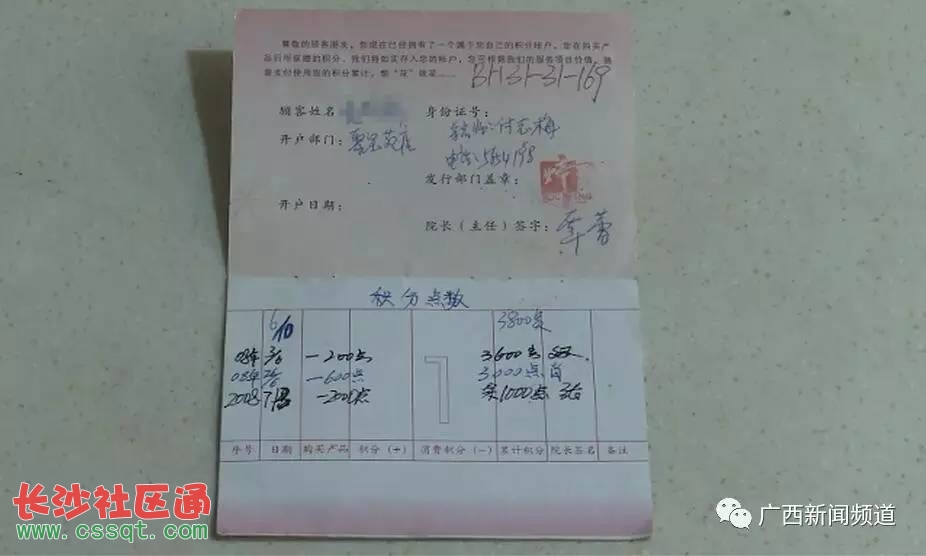 尊敬的顾客朋友,您现在已经拥有了一个属于您自己的积分帐户,您在购买产
品后所获赠的积分,我们将如实存入您的帐户,您可根据我们的服务项目价值,
支付使用您的积分累计,想“花”就花……
BH31-31-169
顾客姓名
身份证号:
开户部门:
发行部门盖章:
开户日期:
院长(主任)签字:
积分点数
6/10
3800点
08年 -200点 3600点
08年 -600点 3000点
2008 -2000点 余1000点
序号 日期 购买产品 积分(+) 消费积分(-) 累计积分 院长签名 备注
长沙社区通
www.cssqt.com
广西新闻频道